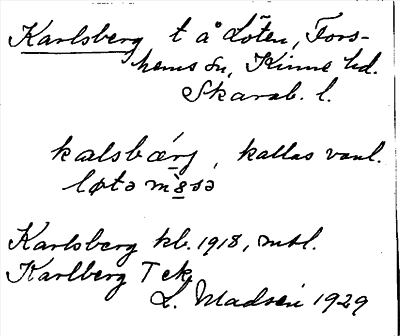 Karlsberg t å Löten, Fors-
hems sn, Kinne hd.
Skarab. l.
kalsbærj, kallas vanl.
løtə mɷsə
Karlsberg kb. 1918, mtl.
Karlberg T ek.
L. Madsén 1929